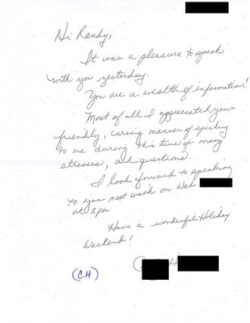 Hi Randy,
It was a pleasure to speak
with you yesterday.
You are a wealth of information!
Most of all I appreciated your
friendly, caring manner of speaking
to me during this time of many
stresses, and questions.
I look forward to speaking
to you next week on Wed
at 5pm
Have a wonderful Holiday
Weekend!
(CH)